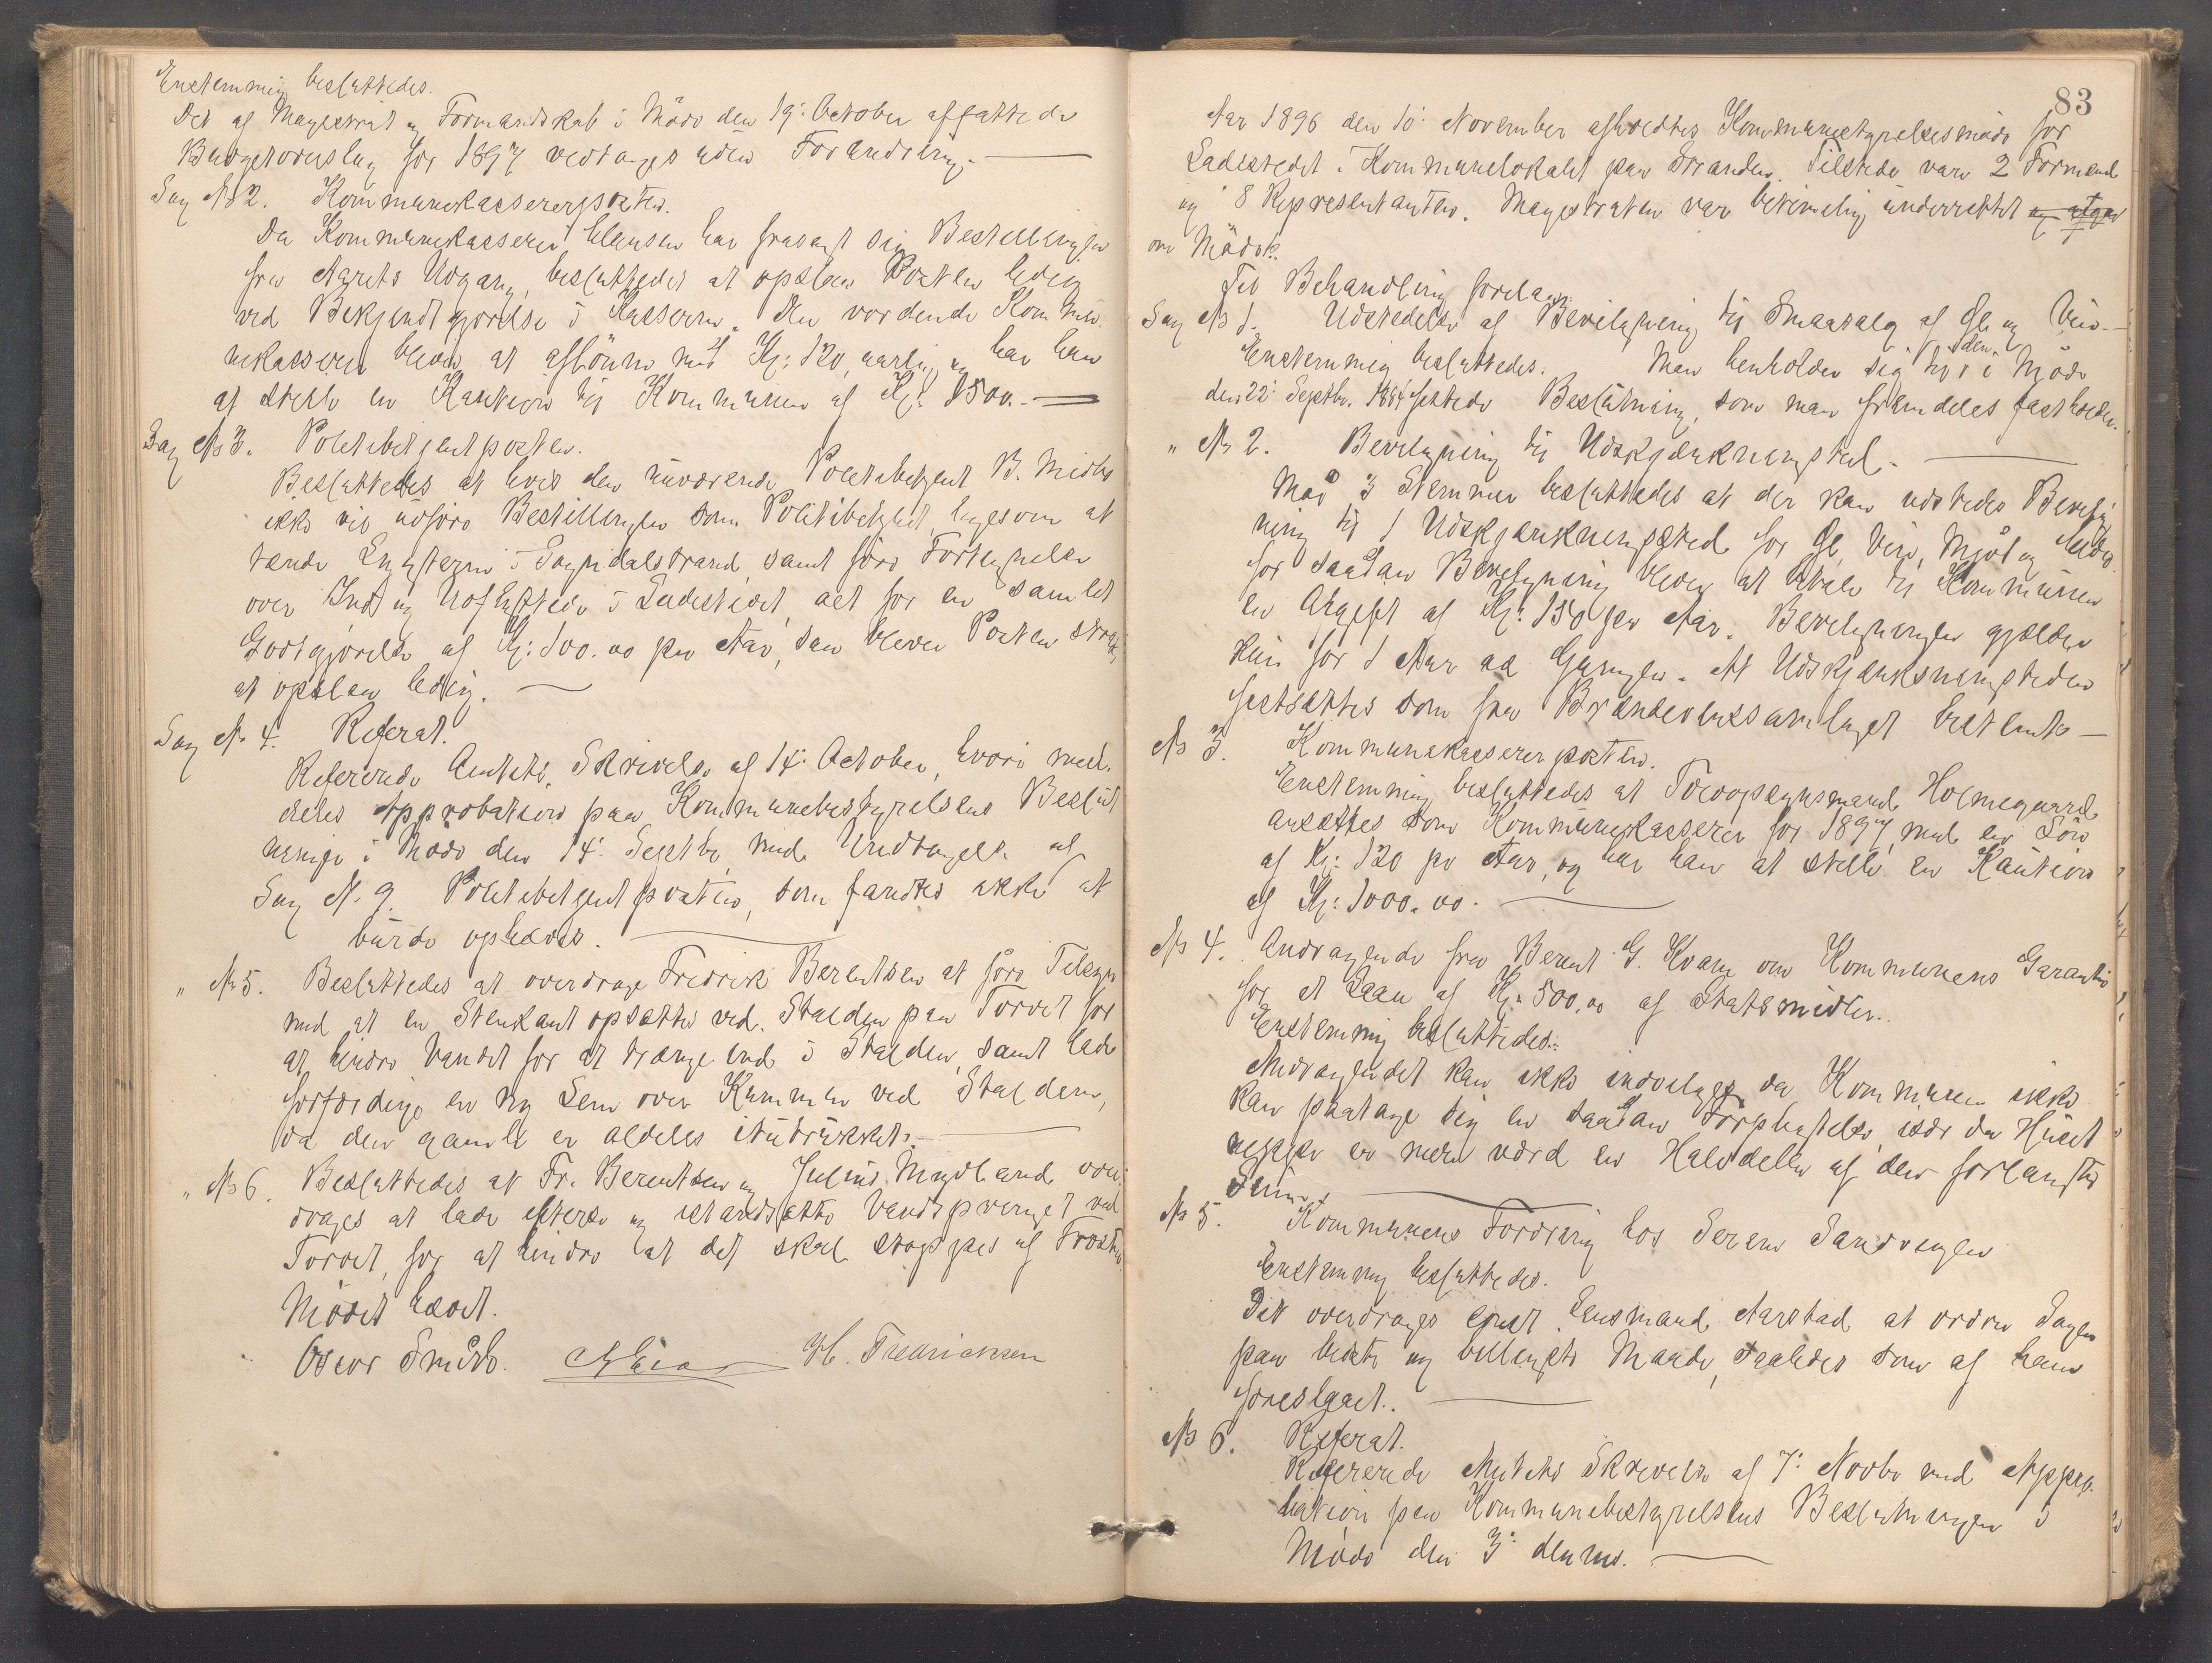 Enstemmig besluttedes.
Det af Magistrat og Formandskab i Möde den 19: October affattede
Budgetforslag for 1897 vedtages uden Forandring.
Sag No 2. Kommunekassererposten.
Da Kommunekasserer Clausen har frasagt sig Bestillingen
fra Aarets Udgang, besluttedes at opslaa Posten ledig
ved Bekjendtgjörelse i Kasserne. Den vordende Kommu-
nekasserer bliver at aflönne med Kr: 120, aarlig og har han
at stille en Kaution til Kommunen af Kr. 1500.-
Sag No 3. Politibetjentposten.
Besluttedes at hvis den nuværende Politibetjent B. Midbö
ikke vil udföre Bestillingen som Politibetjent, ligesom at
tænde Lygterne i Sogndalstrand, samt före Fortegnelse
over Ind og Udflyttede i Ladestedet, alt for en samlet
Godtgjörelse af Kr: 100.00 per Aar, saa bliver Posten strax
at opslaa ledig.
Sag No 4. Referat.
Refererede Amtets Skrivelse af 14: October, hvori med-
deles Approbation paa Kommunebestyrelsens Beslut
ninger i Möde den 14: Septbr med Undtagelse af
Sag No. 9. Politibetjentposten, som fandtes ikke at
burde ophæves.
" No 5. Besluttedes at overdrage Fredrik Berentsen at före Tilsyn
med at en Stenkant opsættes ved Stalden paa Torvet for
at hindre Vandet for at trænge ind i Stalden, samt lade
forfærdige en ny Lem over Kummen ved Stalden,
da den gamle er aldeles itubrukket.
" No 6. Besluttedes at Fr. Berentsen og Julius Mydland over-
drages at lade efterse og istandsætte Vandspringet ved
Torvet, for at hindre at det skal stoppes af Frosten
Mödet hævet.
Oscar Smith. H. Fredricksen
83
Aar 1896 den 10: November afholdtes Kommunestyrelsesmöde for
Ladestedet i Kommunelokalet paa Stranden. Tilstede vare 2 Formænd
og 8 Repræsentanter. Magistraten var betimelig underrettet og
om Mödet.
Til Behandling forelaa:
Sag No 1. Udstedelse af Bevilgning til Smaasalg af Öl og Vin.-
Enstemmig besluttedes. Man henholder sig til den i Möde
den 22: Septbr. 1884 fattede Beslutning, som man fremdeles fastholder.
" No 2. Bevilgning til Udskjænkningssted.
Mod 3 Stemmer besluttedes at der kan udstedes Bevilg
ning til 1 Udskjænkningssted for Öl, Vin, Mjöd og Cider
for saadan Bevilgning bliver at betale til Kommunen
en Afgift af Kr: 150 per Aar. Bevilgningen gjælder
kun for 1 Aar ad Gangen. At Udskjænkningstiden
fastsættes som for Brændevinssamlaget bestemt
No 3. Kommunekassererposten.
Enstemmig besluttedes at Toldopsynsmand Holmegaard
ansættes som Kommunekasserer for 1897, med en Lön
af Kr: 120 pr Aar, og har han at stille en Kaution
af Kr: 1000.00.
No 4. Andragende fra Berent G. Kvam om Kommunens Garanti
for et Laan af Kr: 500.00 af Statsmidler.
Enstemmig besluttedes:
Andragendet kan ikke indvilges da Kommunen ikke
kan paatage sig en saadan Forpligtelse, især da Huset
neppe er mere værd en Halvdelen af den forlangte
Sum.
No 5. Kommunens Fordring hos Severin Sandvigen
Enstemmig besluttedes.
Det overdrages const. Lensmand Aarstad at ordne Sagen
paa bedste og billigste Maade, saaledes som af ham
foreslaaet.
No 6. Referat.
Refererede Amtets Skrivelse af 7: Novbr med Appro-
bation paa Kommunebestyrelsens Beslutninger i
Möde den 3: dennes.